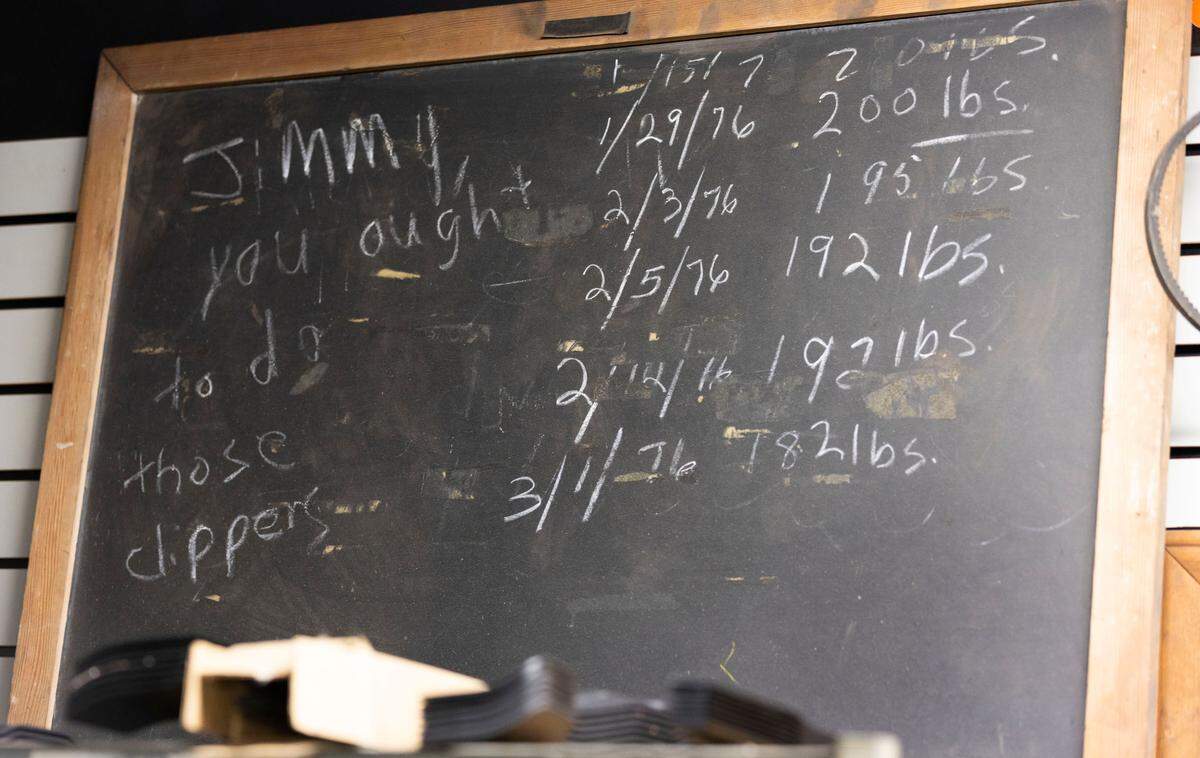 Jimmy,
you ought
to do
those
clippers
1/15/7 lbs.
1/29/76 200 lbs.
2/3/76 195 lbs
2/5/76 192 lbs.
2/14/76 192 lbs.
3/1/76 182 lbs.